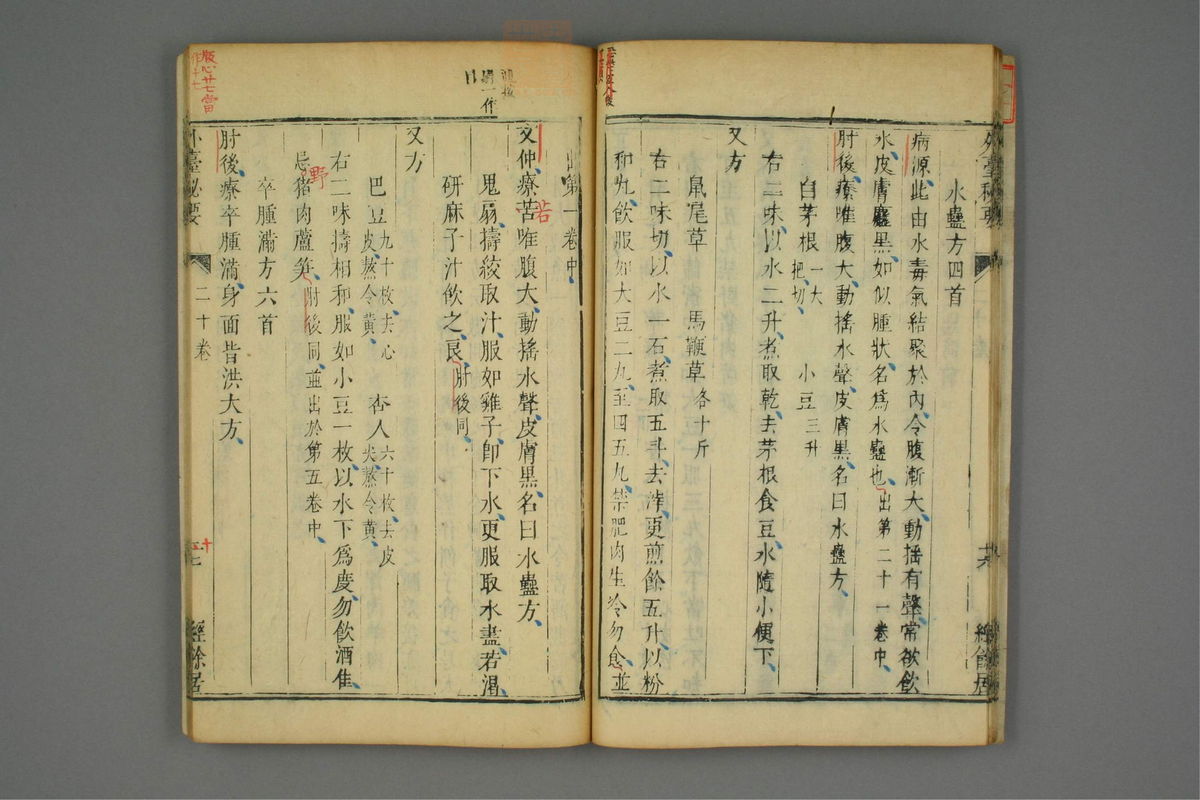 水蠱方四首
病源此由水毒氣結聚於內令腹漸大動搖有聲常欲飲
水皮膚麤黑如似腫狀名爲水蠱也出第二十一卷中
肘後療唯腹大動搖水聲皮膚黑名曰水蠱方
白茅根一大把切 小豆三升
右二味以水二升煮取乾去茅根食豆水隨小便下
又方
鼠尾草 馬鞭草各十斤
右二味切以水一石煮取五斗去滓更煎餘五升以粉
和丸飲服如大豆二丸至四五丸禁肥肉生冷勿食並
出第一卷中
文仲療苦唯腹大動搖水聲皮膚黑名曰水蠱方
若
鬼扇擣絞取汁服如雞子卽下水更服取水盡若渴
研麻子汁飲之良肘後同
又方
巴豆九十枚去心皮熬令黃 杏人六十枚去皮尖熬令黃
右二味擣相和服如小豆一枚以水下爲度勿飲酒佳
忌猪肉蘆笋肘後同並出於第五卷中
野
卒腫滿方六首
肘後療卒腫滿身面皆洪大方
外臺祕要 二十卷 經餘居